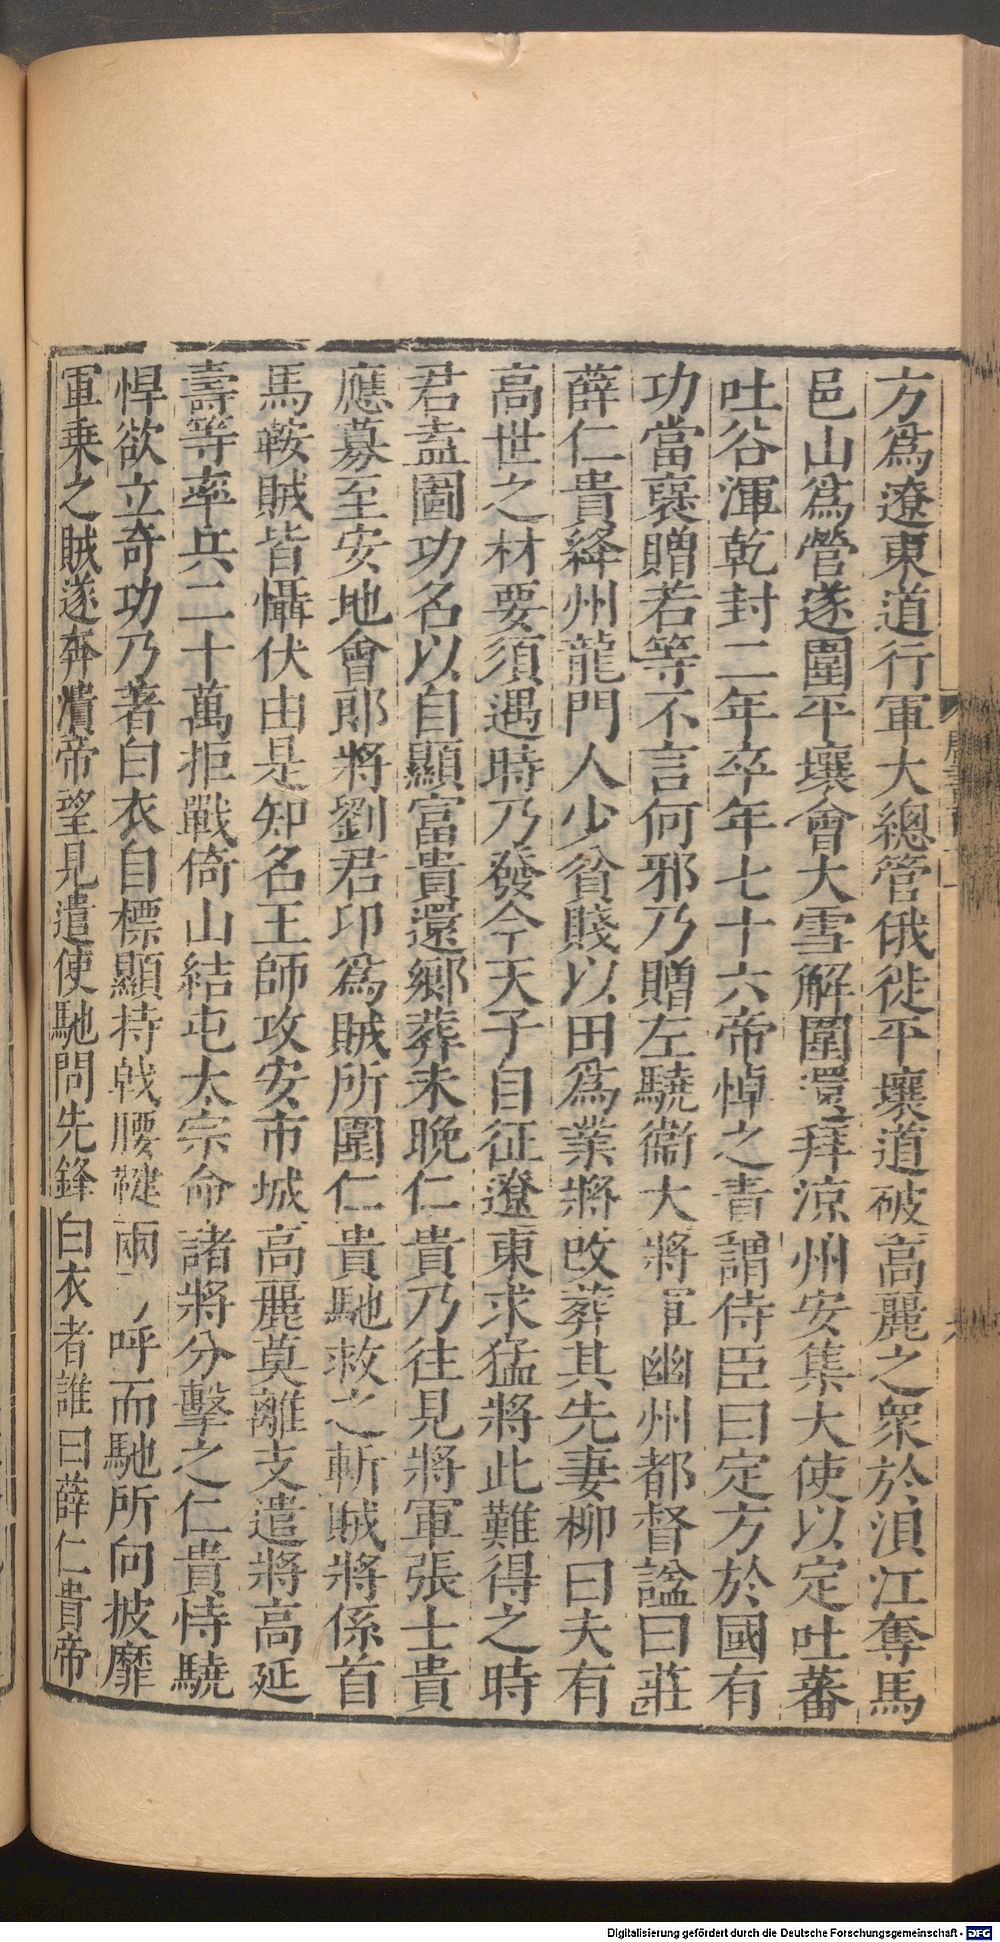 方爲遼東道行軍大總管俄徙平壤道破高麗之衆於浿江奪馬
邑山爲營遂圍平壤會大雪解圍還拜涼州安集大使以定吐蕃
吐谷渾乾封二年卒年七十六帝悼之責謂侍臣曰定方於國有
功當褒贈若等不言何邪乃贈左驍衞大將軍幽州都督諡曰莊
薛仁貴絳州龍門人少貧賤以田爲業將改葬其先妻柳曰夫有
高世之材要須遇時乃發今天子自征遼東求猛將此難得之時
君盍圖功名以自顯富貴還鄉葬未晚仁貴乃往見將軍張士貴
應募至安地會郎將劉君卬爲賊所圍仁貴馳救之斬賊將係首
馬鞍賊皆懾伏由是知名王師攻安市城高麗莫離支遣將高延
壽等率兵二十萬拒戰倚山結屯太宗命諸將分擊之仁貴恃驍
悍欲立奇功乃著白衣自標顯持戟腰鞬兩弓呼而馳所向披靡
軍乗之賊遂奔潰帝望見遣使馳問先鋒白衣者誰曰薛仁貴帝
Digitalisierung gefördert durch die Deutsche Forschungsgemeinschaft - DFG